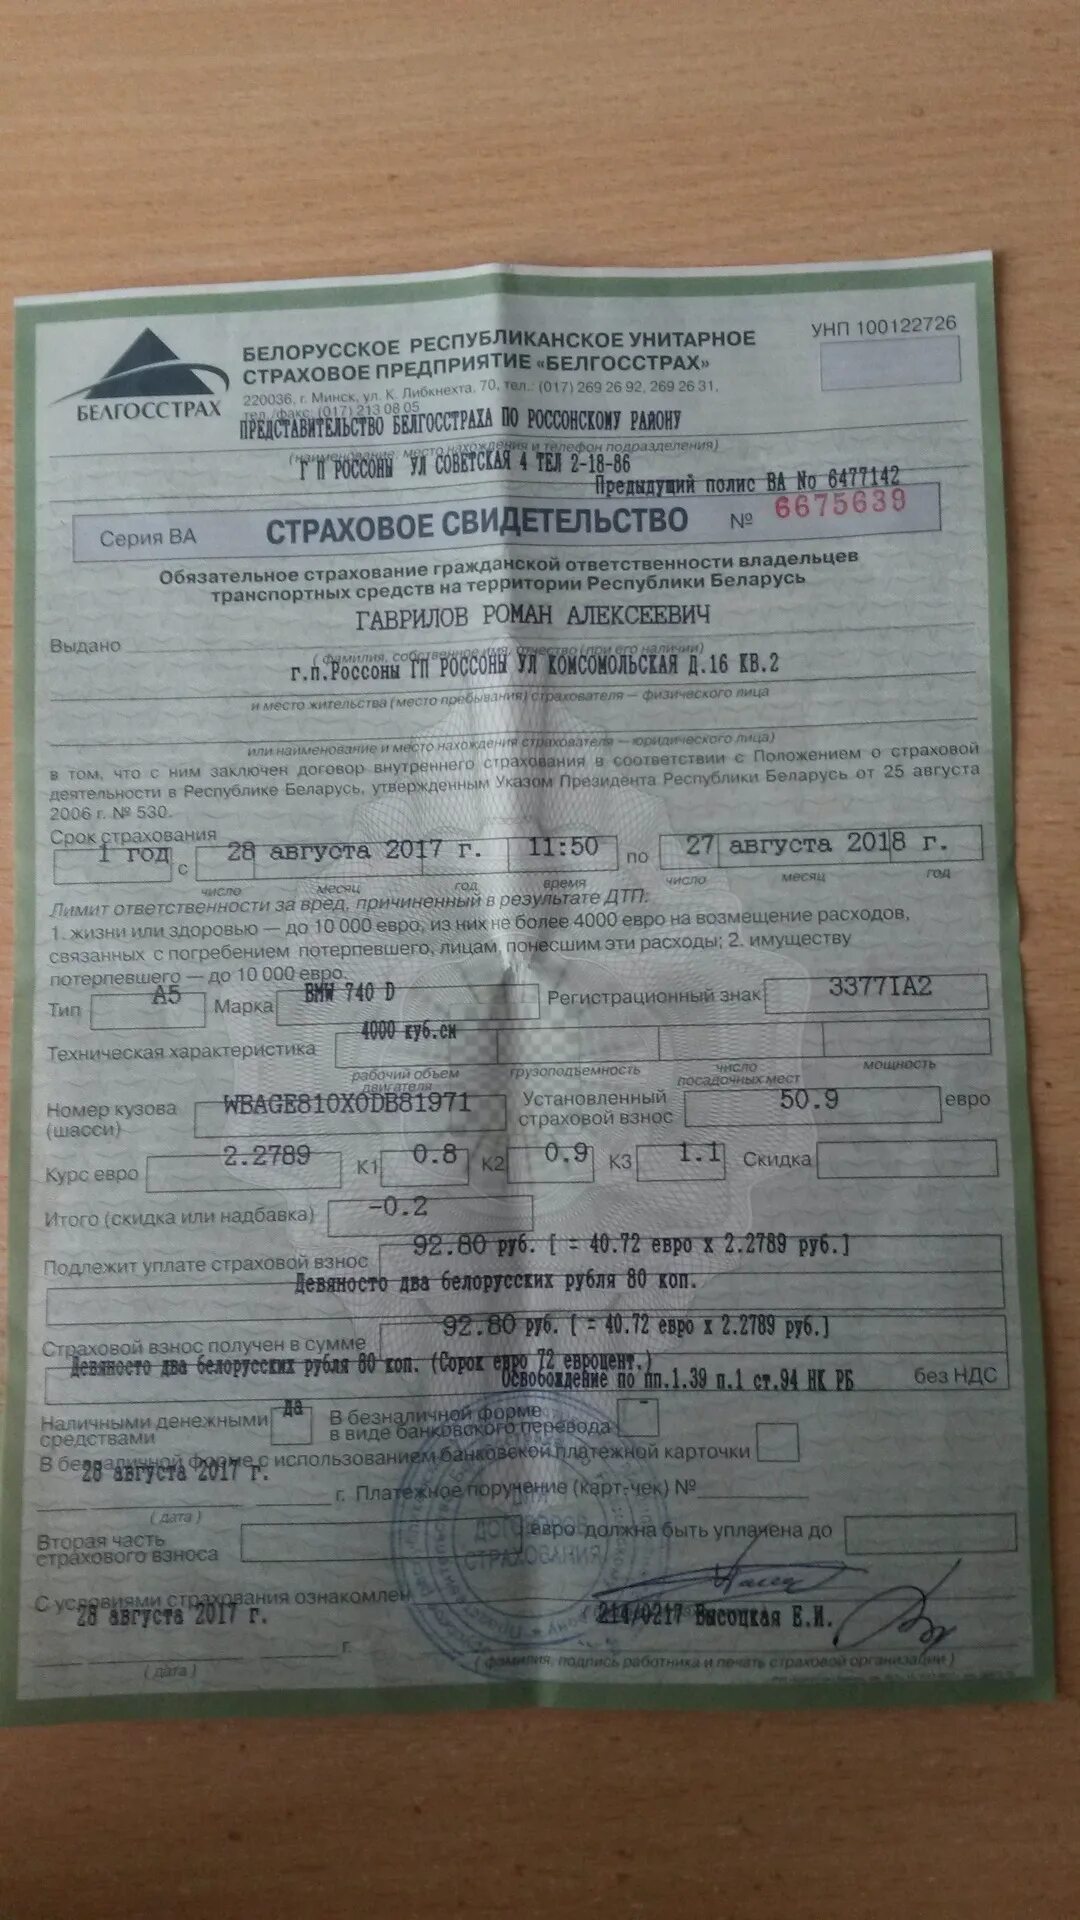 УНП 100122726
БЕЛГОССТРАХ
БЕЛОРУССКОЕ РЕСПУБЛИКАНСКОЕ УНИТАРНОЕ
СТРАХОВОЕ ПРЕДПРИЯТИЕ «БЕЛГОССТРАХ»
220036, г. Минск, ул. К. Либкнехта, 70, тел.: (017) 269 26 92, 269 26 31,
тел./факс: (017) 213 08 05
ПРЕДСТАВИТЕЛЬСТВО БЕЛГОССТРАХА ПО РОССОНСКОМУ РАЙОНУ
(наименование, место нахождения и телефон подразделения)
Г П РОССОНЫ УЛ СОВЕТСКАЯ 4 ТЕЛ 2-18-86
Предыдущий полис ВА No 6477142
Серия ВА СТРАХОВОЕ СВИДЕТЕЛЬСТВО № 6675639
Обязательное страхование гражданской ответственности владельцев
транспортных средств на территории Республики Беларусь
ГАВРИЛОВ РОМАН АЛЕКСЕЕВИЧ
Выдано
(фамилия, собственное имя, отчество (при его наличии)
г.п.Россоны ГП РОССОНЫ УЛ КОМСОМОЛЬСКАЯ Д.16 КВ.2
и место жительства (место пребывания) страхователя — физического лица
или наименование и место нахождения страхователя — юридического лица)
в том, что с ним заключен договор внутреннего страхования в соответствии с Положением о страховой
деятельности в Республике Беларусь, утвержденным Указом Президента Республики Беларусь от 25 августа
2006 г. № 530.
Срок страхования
1 год с 28 августа 2017 г. 11:50 по 27 августа 2018 г.
число месяц год время число месяц год
Лимит ответственности за вред, причиненный в результате ДТП:
1. жизни или здоровью — до 10 000 евро, из них не более 4000 евро на возмещение расходов,
связанных с погребением потерпевшего, лицам, понесшим эти расходы; 2. имуществу
потерпевшего — до 10 000 евро.
Тип А5 Марка BMW 740 D Регистрационный знак 3377IA2
Техническая характеристика 4000 куб.см
рабочий объем двигателя грузоподъемность число посадочных мест мощность
Номер кузова (шасси) WBAGE810X0DB81971 Установленный страховой взнос 50.9 евро
Курс евро 2.2789 К1 0.8 К2 0.9 К3 1.1 Скидка
Итого (скидка или надбавка) -0.2
Подлежит уплате страховой взнос 92.80 руб. [ = 40.72 евро x 2.2789 руб.]
Девяносто два белорусских рубля 80 коп.
Страховой взнос получен в сумме 92.80 руб. [ = 40.72 евро x 2.2789 руб.]
Девяносто два белорусских рубля 80 коп. (Сорок евро 72 евроцент.)
Освобождение по пп.1.39 п.1 ст.94 НК РБ без НДС
Наличными денежными средствами да В безналичной форме в виде банковского перевода -
В безналичной форме с использованием банковской платежной карточки
28 августа 2017 г.
г. Платежное поручение (карт-чек) №
(дата)
Вторая часть страхового взноса евро должна быть уплачена до
ДОГОВОРОВ
СТРАХОВАНИЯ
С условиями страхования ознакомлен
28 августа 2017 г. 214/0217 Высоцкая Е.И.
г.
(дата) (фамилия, подпись работника и печать страховой организации)